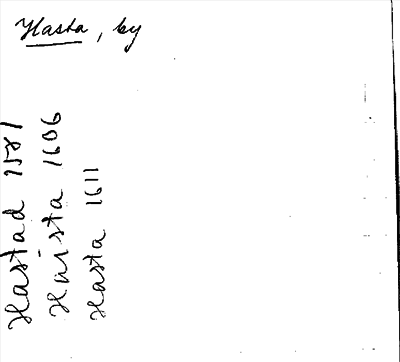 Hasta, by
Hastad 1521
Haista 1606
Hasta 1611